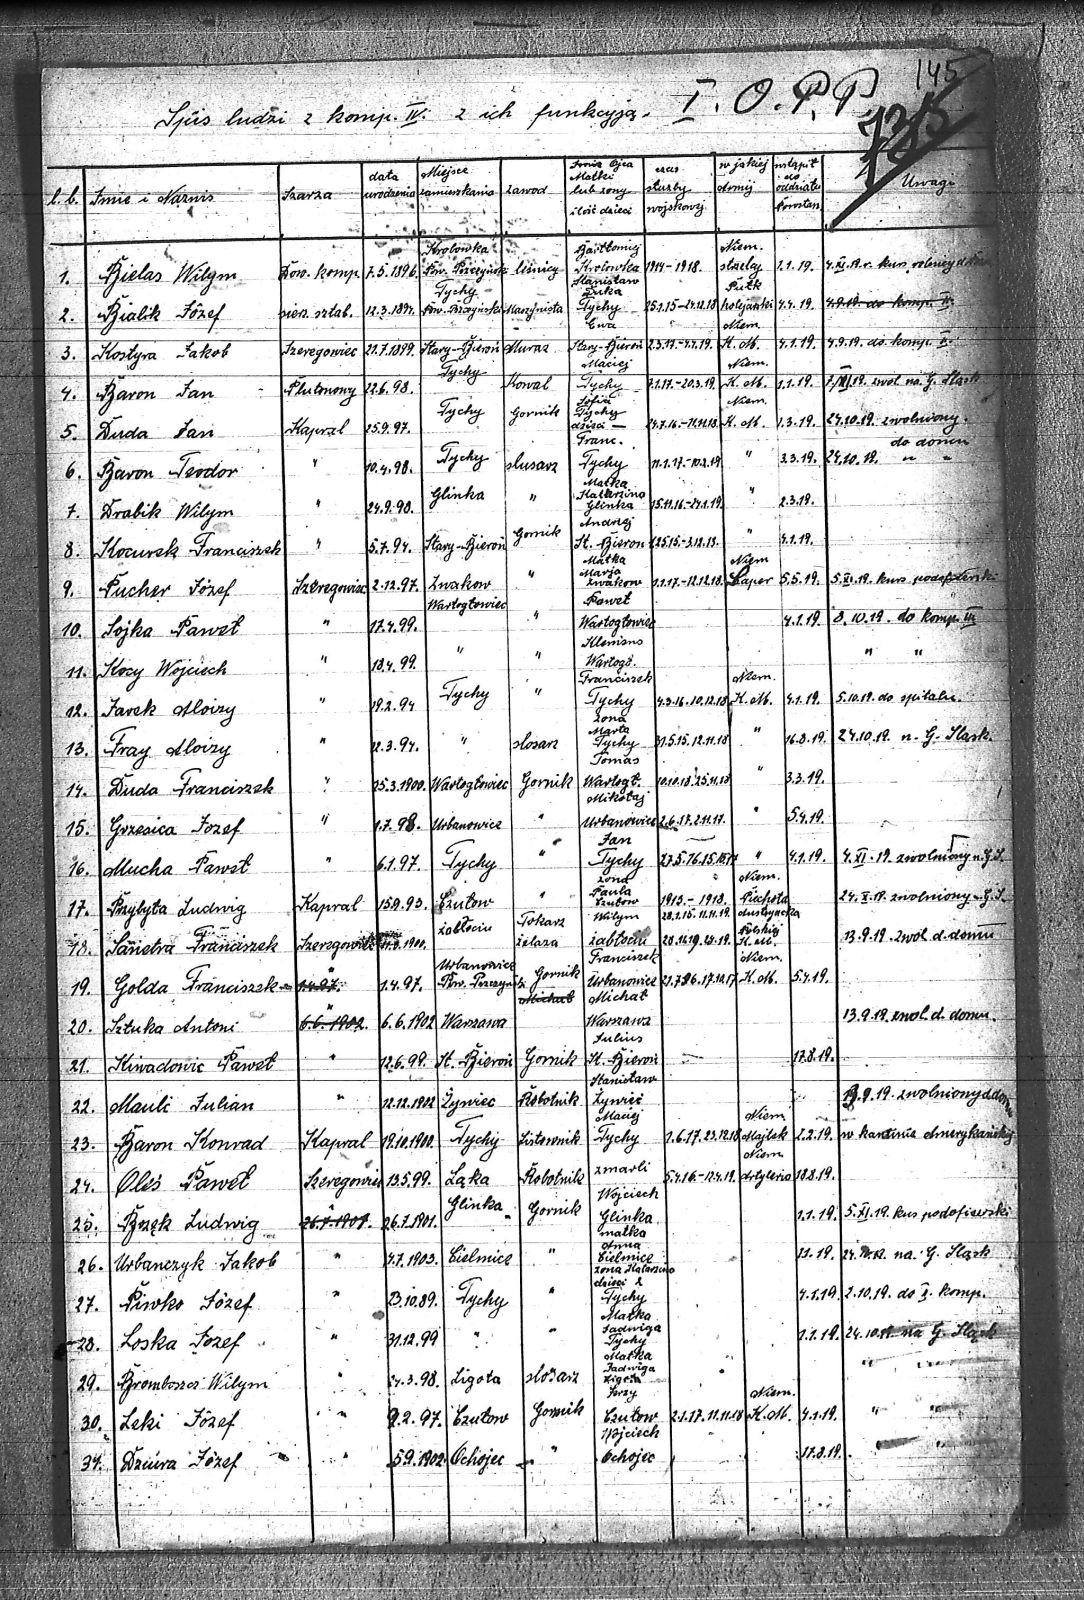 145
Spis ludzi z komp. IV. z ich funkcyją. I. O. P. P
l. b. Imie i Nazwis Szarza data urodzenia Miejsce zamieszkania zawod Imie Ojca Matki lub zony ilość dzieci czas służby wojskowej w jakiej armij wstąpił do oddziału Powstan. Uwagi
1. Bielas Wilym Dow. komp. 7.5.1896. Krolowka Pow. Pszczyński leśnicy Bartłomiej Krolowka 1914-1918. Niem. strzelcy 1.1.19. 4.XI.19.r. kurs
2. Bialik Józef sierz. sztab. 12.3.1894. Tychy Pow. Pszczyński Maszynista Stanisław Tychy 25.1.15-24.12.18 Pułk kolejarski 4.4.19. 4.9.19. do komp. II.
3. Kostyra Jakob Szeregowiec 21.7.1899. Stary-Bieroń Muraz Ewa Stary-Bieroń 2.3.17-4.1.19. Niem. K. M. 4.1.19. 4.9.19. do komp. V.
4. Baron Jan Plutonowy 22.6.98. Tychy Kowal Maciej Tychy 7.1.17.-20.3.19. Niem. K. M. 1.1.19. zwol. na G. Śląsk
5. Duda Jan Kapral 25.9.97. Tychy Gornik Sofia Tychy dzieci — 24.7.16.-11.11.18. Niem. K. M. 1.3.19. 24.10.19. zwolniony do domu
6. Baron Teodor " 10.4.98. Tychy slusarz Franc. Tychy 11.1.17.-10.2.19 " 3.3.19. 24.10.19. " "
7. Drabik Wilym " 24.9.98. Glinka " Matka Katarzina Glinka 15.11.16-24.1.19. " 2.3.19.
8. Kocurek Franciszek " 5.7.94. Stary-Bieroń Gornik Andrzej St. Bieroń 1.25.15.-3.12.18. " 4.1.19.
9. Pucher Józef Szeregowiec 2.12.97. Zwakow " Matka Marja Zwakow 1.1.17.-12.12.18. Niem Saper 5.5.19. 5.XI.19. kurs
10. Sojka Paweł " 17.4.99. Wartogłowiec " Paweł Wartogłowiec 4.1.19. 8.10.19. do komp. III
11. Kocy Wojciech " 18.4.99. " " Klemens Wartogł. " "
12. Jarek Aloizy " 19.2.94 Tychy " Franciszek Tychy 4.3.16.10.12.18 Niem. K. M. 4.1.19. 5.10.19. do szpitalu.
13. Fray Aloizy " 12.3.94. " slosarz zona Marta Tychy 31.5.15.12.11.18 " 16.8.19. 24.10.19. n. G. Slask.
14. Duda Franciszek " 25.3.1900. Wartogłowiec Gornik Tomas Wartogł. 10.10.18.25.11.18 " 3.3.19.
15. Grzesica Jozef " 1.7.98. Urbanowice " Mikołaj Urbanowice 2.6.17.2.11.17. " 5.4.19.
16. Mucha Paweł " 6.1.97. Tychy " Jan Tychy " 4.1.19. 4.XI.19. zwolniony n. G. S.
17. Przybyta Ludwig Kapral 15.9.93. Czułow " zona Paula Czułow 1913.-1918. Niem. Piechota 24.X.19. zwolniony n. G. S.
18. Sanetra Franciszek Szeregowiec 1900. zabłociu Tokarz żelaza Wilym zabłociu 28.1.15.11.11.19. K. M. 13.9.19. zwol. d. domu
19. Golda Franciszek " 1.4.97. 1.4.97. Urbanowice Pow. Pszczyński Gornik Franciszek Urbanowice Niem. K. M. 5.4.19.
20. Sztuka Antoni " 6.6.1902. 6.6.1902 Warszawa Michał Michał Warszawa 13.9.19. zwol. d. domu.
21. Kiwadowic Paweł " 12.6.99. St. Bieroń Gornik Julius St. Bieroń — 17.8.19.
22. Mauli Julian " 12.12.1902 Żywiec Robotnik Stanisław Żywiec 19.9.19. zwolniony d. domu
23. Baron Konrad Kapral 19.10.1900. Tychy Listownik Maciej Tychy 1.6.17.23.12.18 Niem Majtek 2.2.19. w kantinie amerykańskiej
24. Oleś Paweł Szeregowiec 13.5.99. Łąka Robotnik zmarli 5.4.16.-12.4.19. Niem artyleria 18.8.19.
25. Bręk Ludwig " 26.7.1901. 26.7.1901. Glinka Gornik Wojciech Glinka 1.1.19. 5.XI.19. kurs podoficerski
26. Urbanczyk Jakob " 4.7.1903. Cielmice " matka Anna Cielmice 1.1.19. na G. Śląsk
27. Piwko Józef " 23.10.89. Tychy " zona Katarzina dzieci 2 Tychy 4.1.19 2.10.19. do V. komp.
28. Loska Jozef " 31.12.99 " " Matka Jadwiga Tychy 1.1.19. 24.10.19. na G. Śląsk
29. Bromboszcz Wilym " 24.3.98. Ligota slosarz Matka Jadwiga Ligota " "
30. Leki Józef " 9.2.97. Czułow Gornik Jerzy Czułow 2.1.17.11.11.18 Niem. K. M. 4.1.19. " "
31. Dziura Józef " 5.9.1902. Ochojec " Wojciech Ochojec 17.8.19.